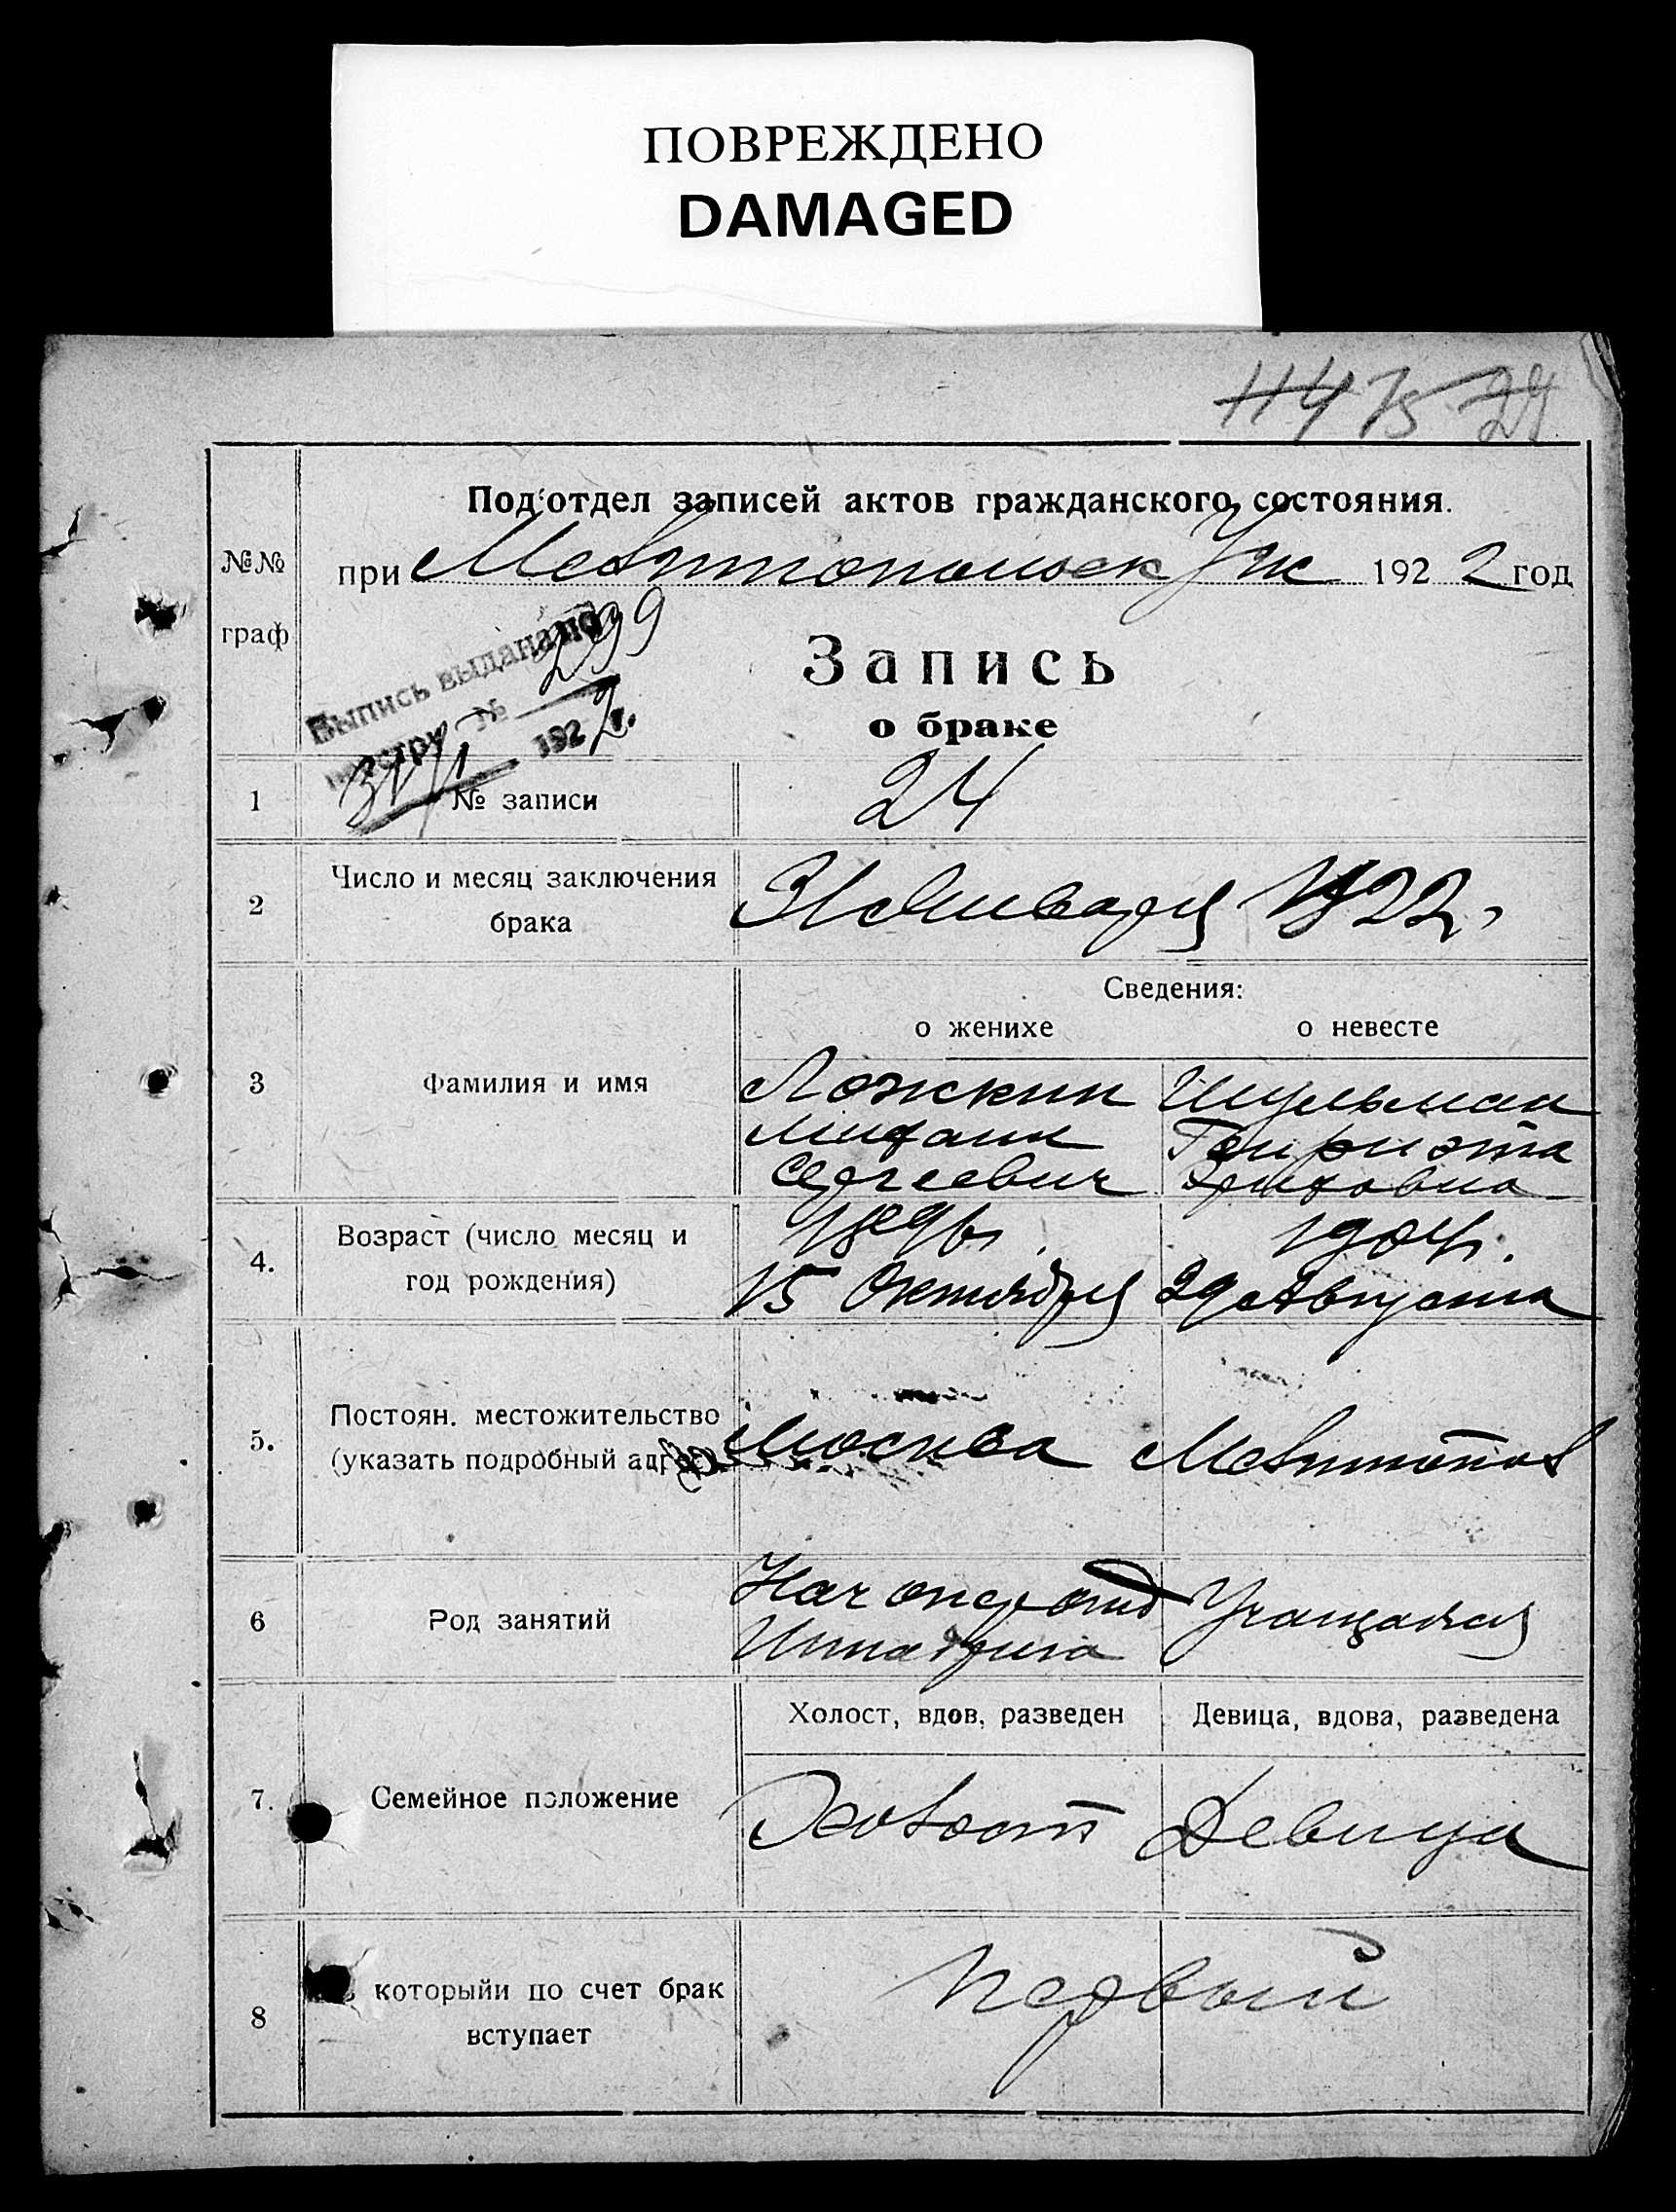 ПОВРЕЖДЕНО
DAMAGED
Под'отдел записей актов гражданского состояния.
№№ граф
при Мелитопольск Уик 1922 год
Выпись выдана по
реестру № 299
31/I 1922 г.
Запись
о браке
1 № записи 24
2 Число и месяц заключения брака 31 Января 1922.
Сведения:
о женихе о невесте
3 Фамилия и имя
Ложкин Шульман
Михаил Генриэта
Сергеевич
4. Возраст (число месяц и год рождения)
1896г. 1904г.
15 Октября 29 Августа
5. Постоян. местожительство
(указать подробный адрес)
Москва Мелитопол
6 Род занятий
Нач опер отд Учащаяся
Штадива
Холост, вдов, разведен Девица, вдова, разведена
7. Семейное положение Холост Девица
8 которыйи по счет брак вступает Первый